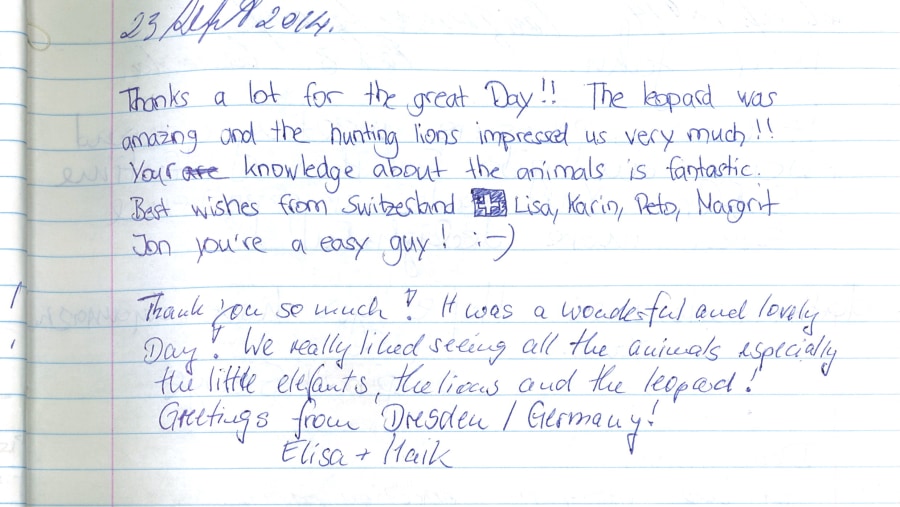 23 Sept 2014.
Thanks a lot for the great Day!! The leopard was
amazing and the hunting lions impressed us very much!!
Your are knowledge about the animals is fantastic.
Best wishes from Switzerland Lisa, Karin, Peto, Margrit
Jon you're a easy guy! :-)
Thank you so much! It was a wonderful and lovely
Day! We really liked seeing all the animals especially
the little elefants, the lions and the leopard!
Greetings from Dresden / Germany!
Elisa + Maik